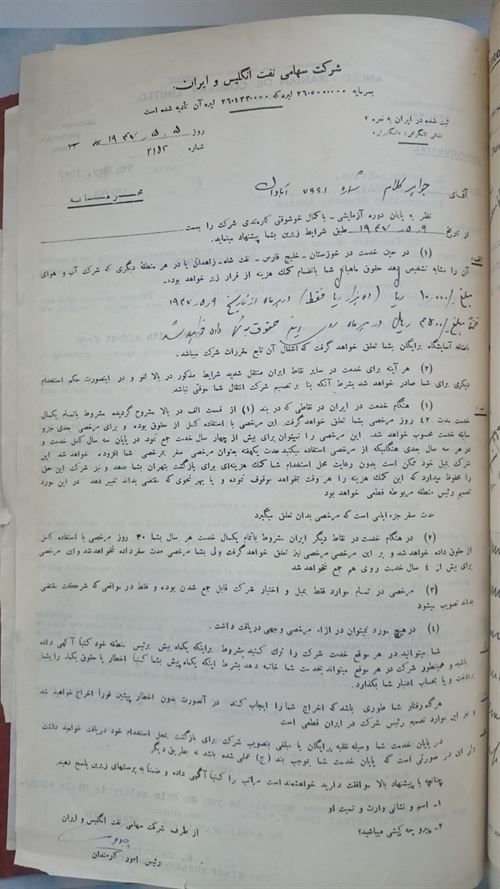 شرکت سهامی نفت انگلیس و ایران
بسرمایه ۲۶،۵۰۰،۰۰۰ لیره که لیره آن تادیه شده است
ثبت شده در ایران به نمره ۲
روز ۵ - ۵ - ۱۹۴۷
شماره
محرمانه
آقای جواهر کلام شماره ۷۹۶۱ آبادان
نظر به پایان دوره آزمایشی - باکمال خوشوقتی کارمندی شرکت را بسمت
از تاریخ ۹ - ۵ - ۱۹۴۷ طبق شرایط زیرین بشما پیشنهاد مینماید.
الف:
(۱) در حین خدمت در خوزستان - خلیج فارس - نفت شاه - زاهدان یا در هر منطقهٔ دیگری که شرکت آب و هوای
آن را مشابه تشخیص دهد حقوق ماهیانهٔ شما بانضمام کمک هزینه از قرار زیر خواهد بود:
مبلغ ۱۰،۰۰۰/ ریال (ده هزار ریال فقط) در هر ماه از تاریخ ۹ ر ۵ ر ۱۹۴۷
ضمناً مبلغ ریال در هر ماه روی این حقوق به شما داده خواهد شد
باضافه آسایشگاه برایگان بشما تعلق خواهد گرفت که اشغال آن تابع مقررات شرکت میباشد.
(۲) هر آینه برای خدمت در سایر نقاط ایران منتقل شدید شرایط مذکور در بالا لغو و در اینصورت حکم استخدام
دیگری برای شما صادر خواهد شد بشرط آنکه بنا بر تصمیم شرکت انتقال شما موقتی نباشد.
ب:
(۱) هنگام خدمت در ایران در نقاطی که در بند (۱) از قسمت الف در بالا مشروح گردیده مشروط باتمام یکسال
خدمت بمدت ۴۲ روز مرخصی بشما تعلق خواهد گرفت. این مرخصی با استفاده کامل از حقوق بوده و برای مرخصی بعدی جزو
سابقه خدمت محسوب خواهد شد. این مرخصی را نمیتوان برای بیش از چهار سال خدمت جمع نمود. در پایان سه سال کامل خدمت و
در هر سه سال بعدی هنگامیکه از مرخصی استفاده میکنید مدت یکهفته بعنوان مرخصی سفر بمرخصی شما افزوده خواهد شد. این
شرکت بمیل خود ممکن است بدون رعایت محل استخدام شما کمک هزینه‌ای برای بازگشت بتهران بشما بدهد و نیز شرکت این حق
را محفوظ میدارد که این کمک هزینه را هر وقت بخواهد موقوف نموده و یا بهر نحوی که مقتضی بداند تغییر دهد در این مورد
تصمیم رئیس منطقه مربوطه قطعی خواهد بود
مدت سفر جزء ایامی است که مرخصی بدان تعلق میگیرد
(۲) در هنگام خدمت در نقاط دیگر ایران بشروط باتمام یکسال خدمت هر سال بشما ۳۰ روز مرخصی با استفاده کامل
از حقوق داده خواهد شد و بر این مرخصی مرخصی نیز تعلق خواهد گرفت ولی بشما مرخصی مدت سفر داده نخواهد شد و این مرخصی
برای بیش از ۴ سال خدمت روی هم جمع نخواهد شد
(۳) مرخصی در تمام موارد فقط بمیل و اختیار شرکت قابل جمع شدن بوده و فقط در مواقعی که شرکت مقتضی
بداند تصویب میشود
(۴) در هیچ مورد نمیتوان در ازاء مرخصی وجهی دریافت داشت.
شما میتوانید در هر موقع خدمت شرکت را ترک کنید بشرط براینکه یکماه پیش برئیس منطقه خود کتباً آگهی داده
باشید و همینطور شرکت در هر موقع میتواند بخدمت شما خاتمه دهد بشرط اینکه یکماه پیش بشما کتباً اخطار یا حقوق یکماه را بشما
پرداخت و یا بحساب اعتبار شما بگذارد.
هرگاه رفتار شما طوری باشد که اخراج شما را ایجاب کند در آنصورت بدون اخطار پیشین فوراً اخراج خواهید شد
و در این موارد تصمیم رئیس شرکت در ایران قطعی است
در پایان خدمت شما وسیله نقلیه برایگان یا مبلغی بتصویب شرکت برای بازگشت بمحل استخدام خود دریافت خواهید داشت
ولی این در صورتی است که پایان خدمت شما بموجب بند (ج) عملی شده باشد نه بطریق دیگر
چنانچه با پیشنهاد بالا موافقت دارید خواهشمند است مراتب را کتباً آگهی داده و ضمناً به پرسشهای زیرین پاسخ دهید.
۱- اسم و نشانی وارث و نسبت او
۲- مایل به بیمه کیشی میباشید؟
از طرف شرکت سهامی نفت انگلیس و ایران
رئیس امور کارمندان